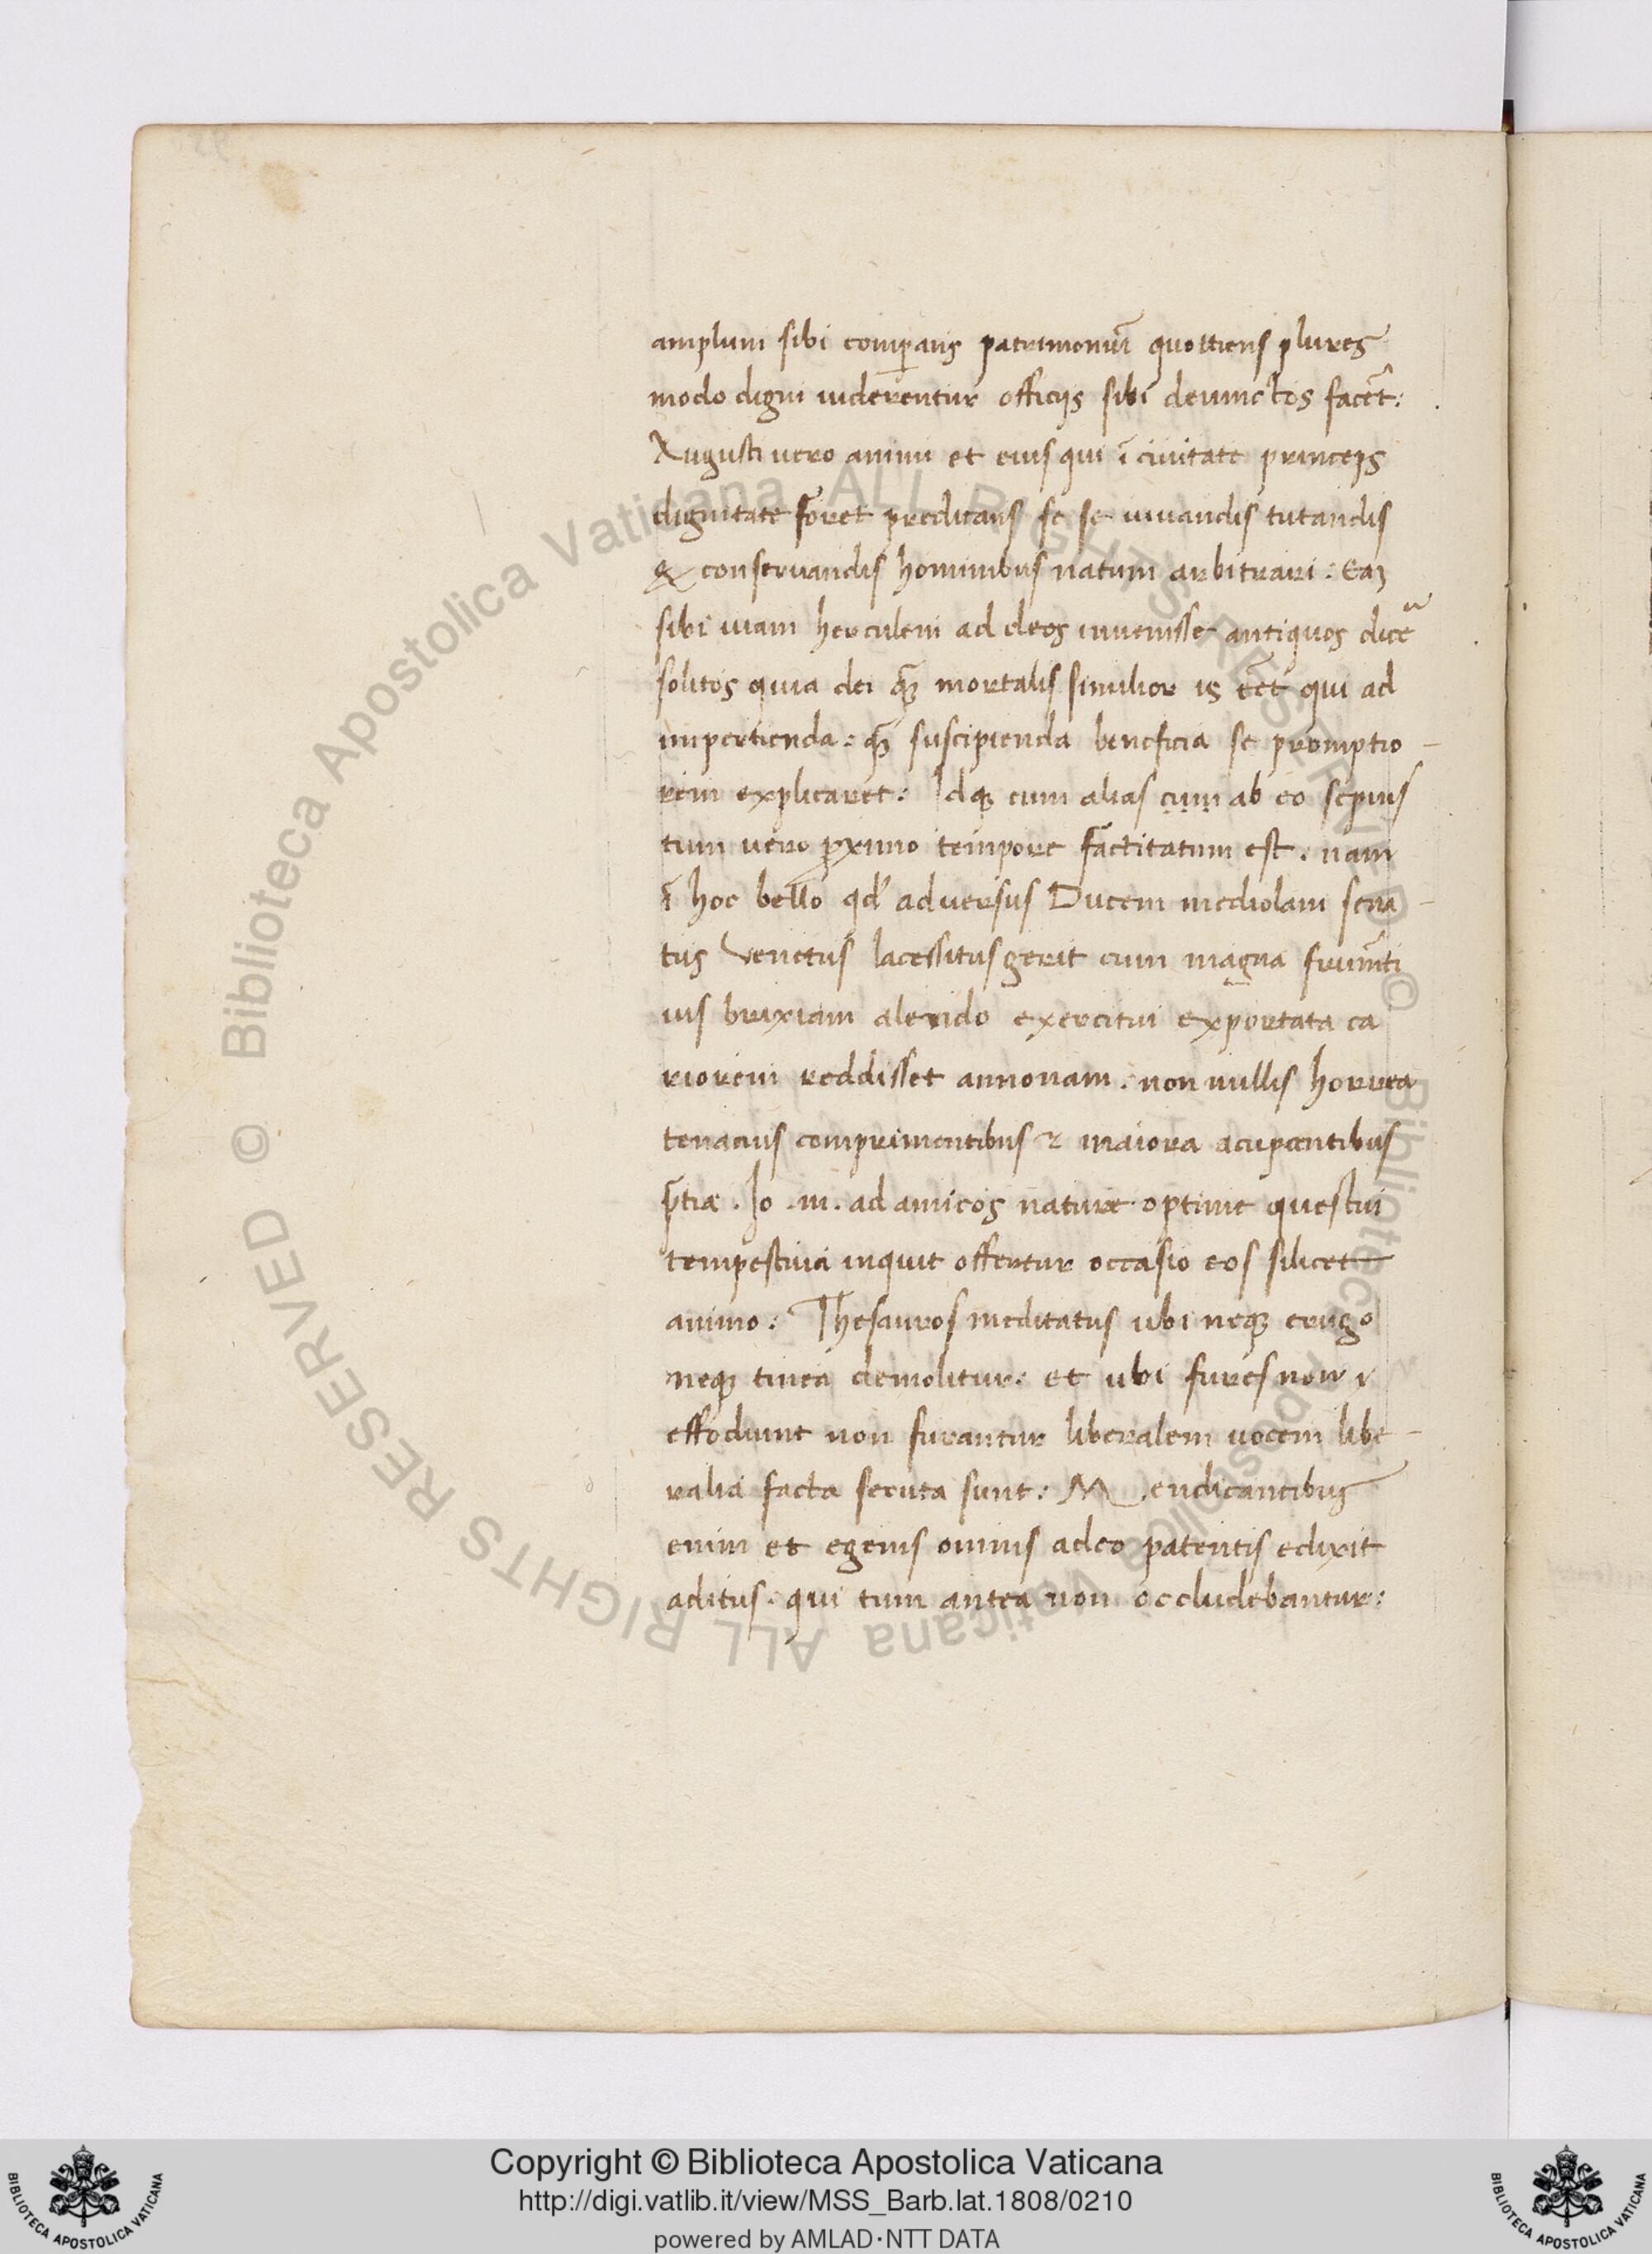 amplum sibi comparans patrimoniū quottiens plures
modo digni uiderentur officijs sibi deuinctos facēt:
Augusti uero animi et eius qui ī ciuitate princeps
dignitate foret predicans se se iuuandis tutandis
& conseruandis hominibus natum arbitrari: Eaꝫ
sibi uiam herculem ad deos inuenisse antiquos dice
solitos quia dei qꝫ̄ mortalis similior is eēt qui ad
impertienda: qꝫ̄ suscipienda beneficia se promptio-
rem explicaret: Idqꝫ cum alias cum ab eo sepius
tum uero ꝓximo tempore factitatum est. nam
ī hoc bello qd̄ aduersus Ducem mediolani sena-
tus Venetus lacessitus gerit cum magna frumēti
uis brixiam alendo exercitui exportata ca
riorem reddisset annonam. non nullis horrea
tenacius comprimentibus ⁊ maiora acupantibus
p̄tia. Io. m. ad amicos nature optime questui
tempestiua inquit offertur occasio eos silicet
animo: Thesauros meditatus ubi neqꝫ erugo
neqꝫ tinea demolitur: et ubi fures non
effodiunt non furantur liberalem uocem libe-
ralia facta secuta sunt: Mendicantibus
enim et egenis omnis adeo patentis edixit
aditus. qui tum antea non occludebantur:
© Biblioteca Apostolica Vaticana ALL RIGHTS RESERVED © Biblioteca Apostolica Vaticana ALL RIGHTS RESERVED
Copyright © Biblioteca Apostolica Vaticana
http://digi.vatlib.it/view/MSS_Barb.lat.1808/0210
powered by AMLAD·NTT DATA
BIBLIOTECA APOSTOLICA VATICANA
BIBLIOTECA APOSTOLICA VATICANA